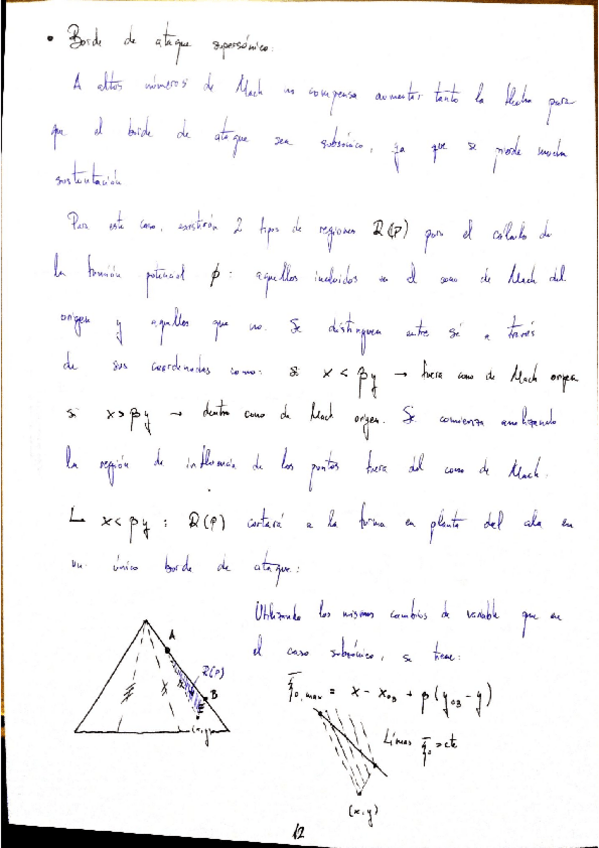 • Borde de ataque supersónico:
A altos números de Mach no compensa aumentar tanto la flecha para
que el borde de ataque sea subsónico, ya que se pierde mucha
sustentación
Para este caso, existirán 2 tipos de regiones R(P) para el cálculo de
la función potencial ϕ: aquellos incluidos en el cono de Mach del
origen y aquellos que no. Se distinguen entre sí a través
de sus coordenadas como: si x < βy → fuera cono de Mach origen
si x > βy → dentro cono de Mach origen. Se comienza analizando
la región de influencia de los puntos fuera del cono de Mach.
∟ x < βy : R(P) cortará a la forma en planta del ala en
un único borde de ataque:
Utilizando los mismos cambios de variable que en
el caso subsónico, se tiene:
A
R(P)
B
(x,y)
ξ̄₀,max = x - x₀B + β(y₀B - y)
Líneas ξ̄₀ = cte
(x,y)
12